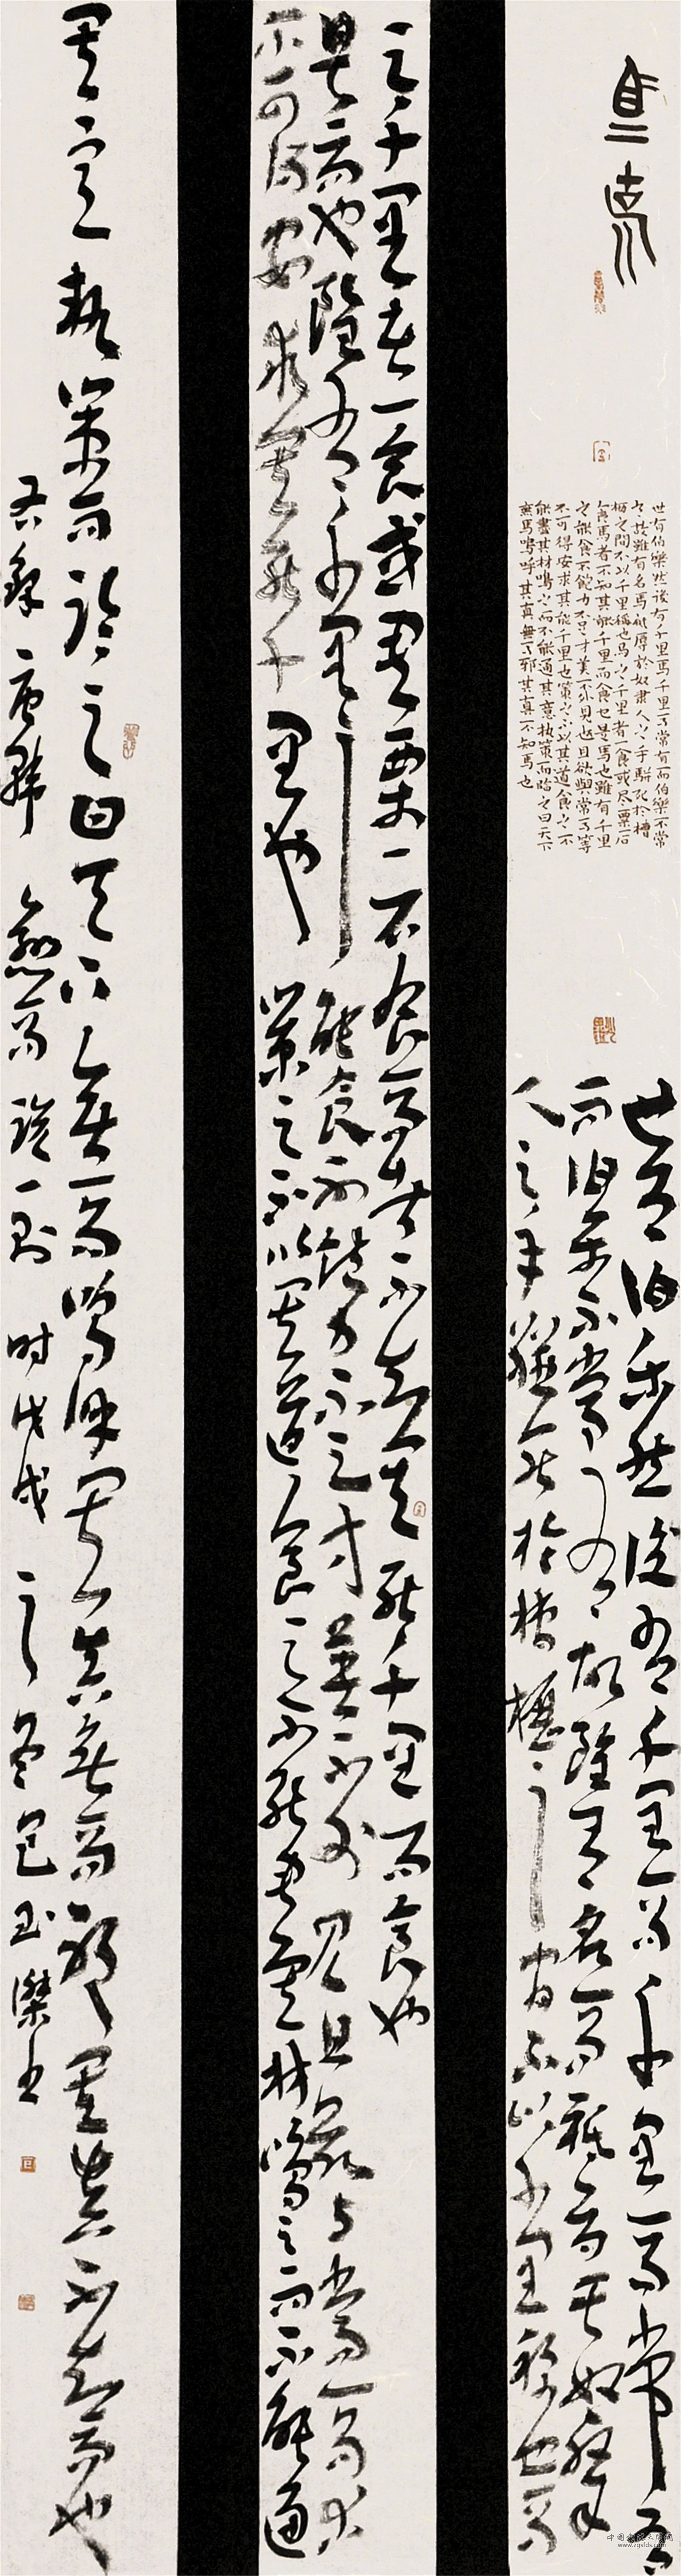 馬説
世有伯樂然後有千里馬千里馬常有而伯樂不常
有故雖有名馬祇辱於奴隸人之手駢死於槽
櫪之間不以千里稱也馬之千里者一食或尽粟一石
食馬者不知其能千里而食也是馬也雖有千里
之能食不飽力不足才美不外見也且欲與常馬等
不可得安求其能千里也策之不以其道食之不
能盡其材鳴之而不能通其意執策而臨之曰天下
無馬嗚呼其真無馬邪其真不知馬也
世有伯樂然後有千里馬千里馬常有
而伯樂不常有故雖有名馬祇辱於奴隸
人之手駢死於槽櫪之間不以千里稱也馬
之千里者一食或盡粟一石食馬者不知其能千里而食也
是馬也雖有千里之能食不飽力不足才美不外見且欲與常馬等
不可得安求其能千里也策之不以其道食之不能盡其材鳴之而不能通
其意執策而臨之曰天下無馬嗚呼其真無馬邪其真不知馬也
右錄唐韓愈馬說一則時戊戌之冬包玉傑書
www.zgsfds.cn